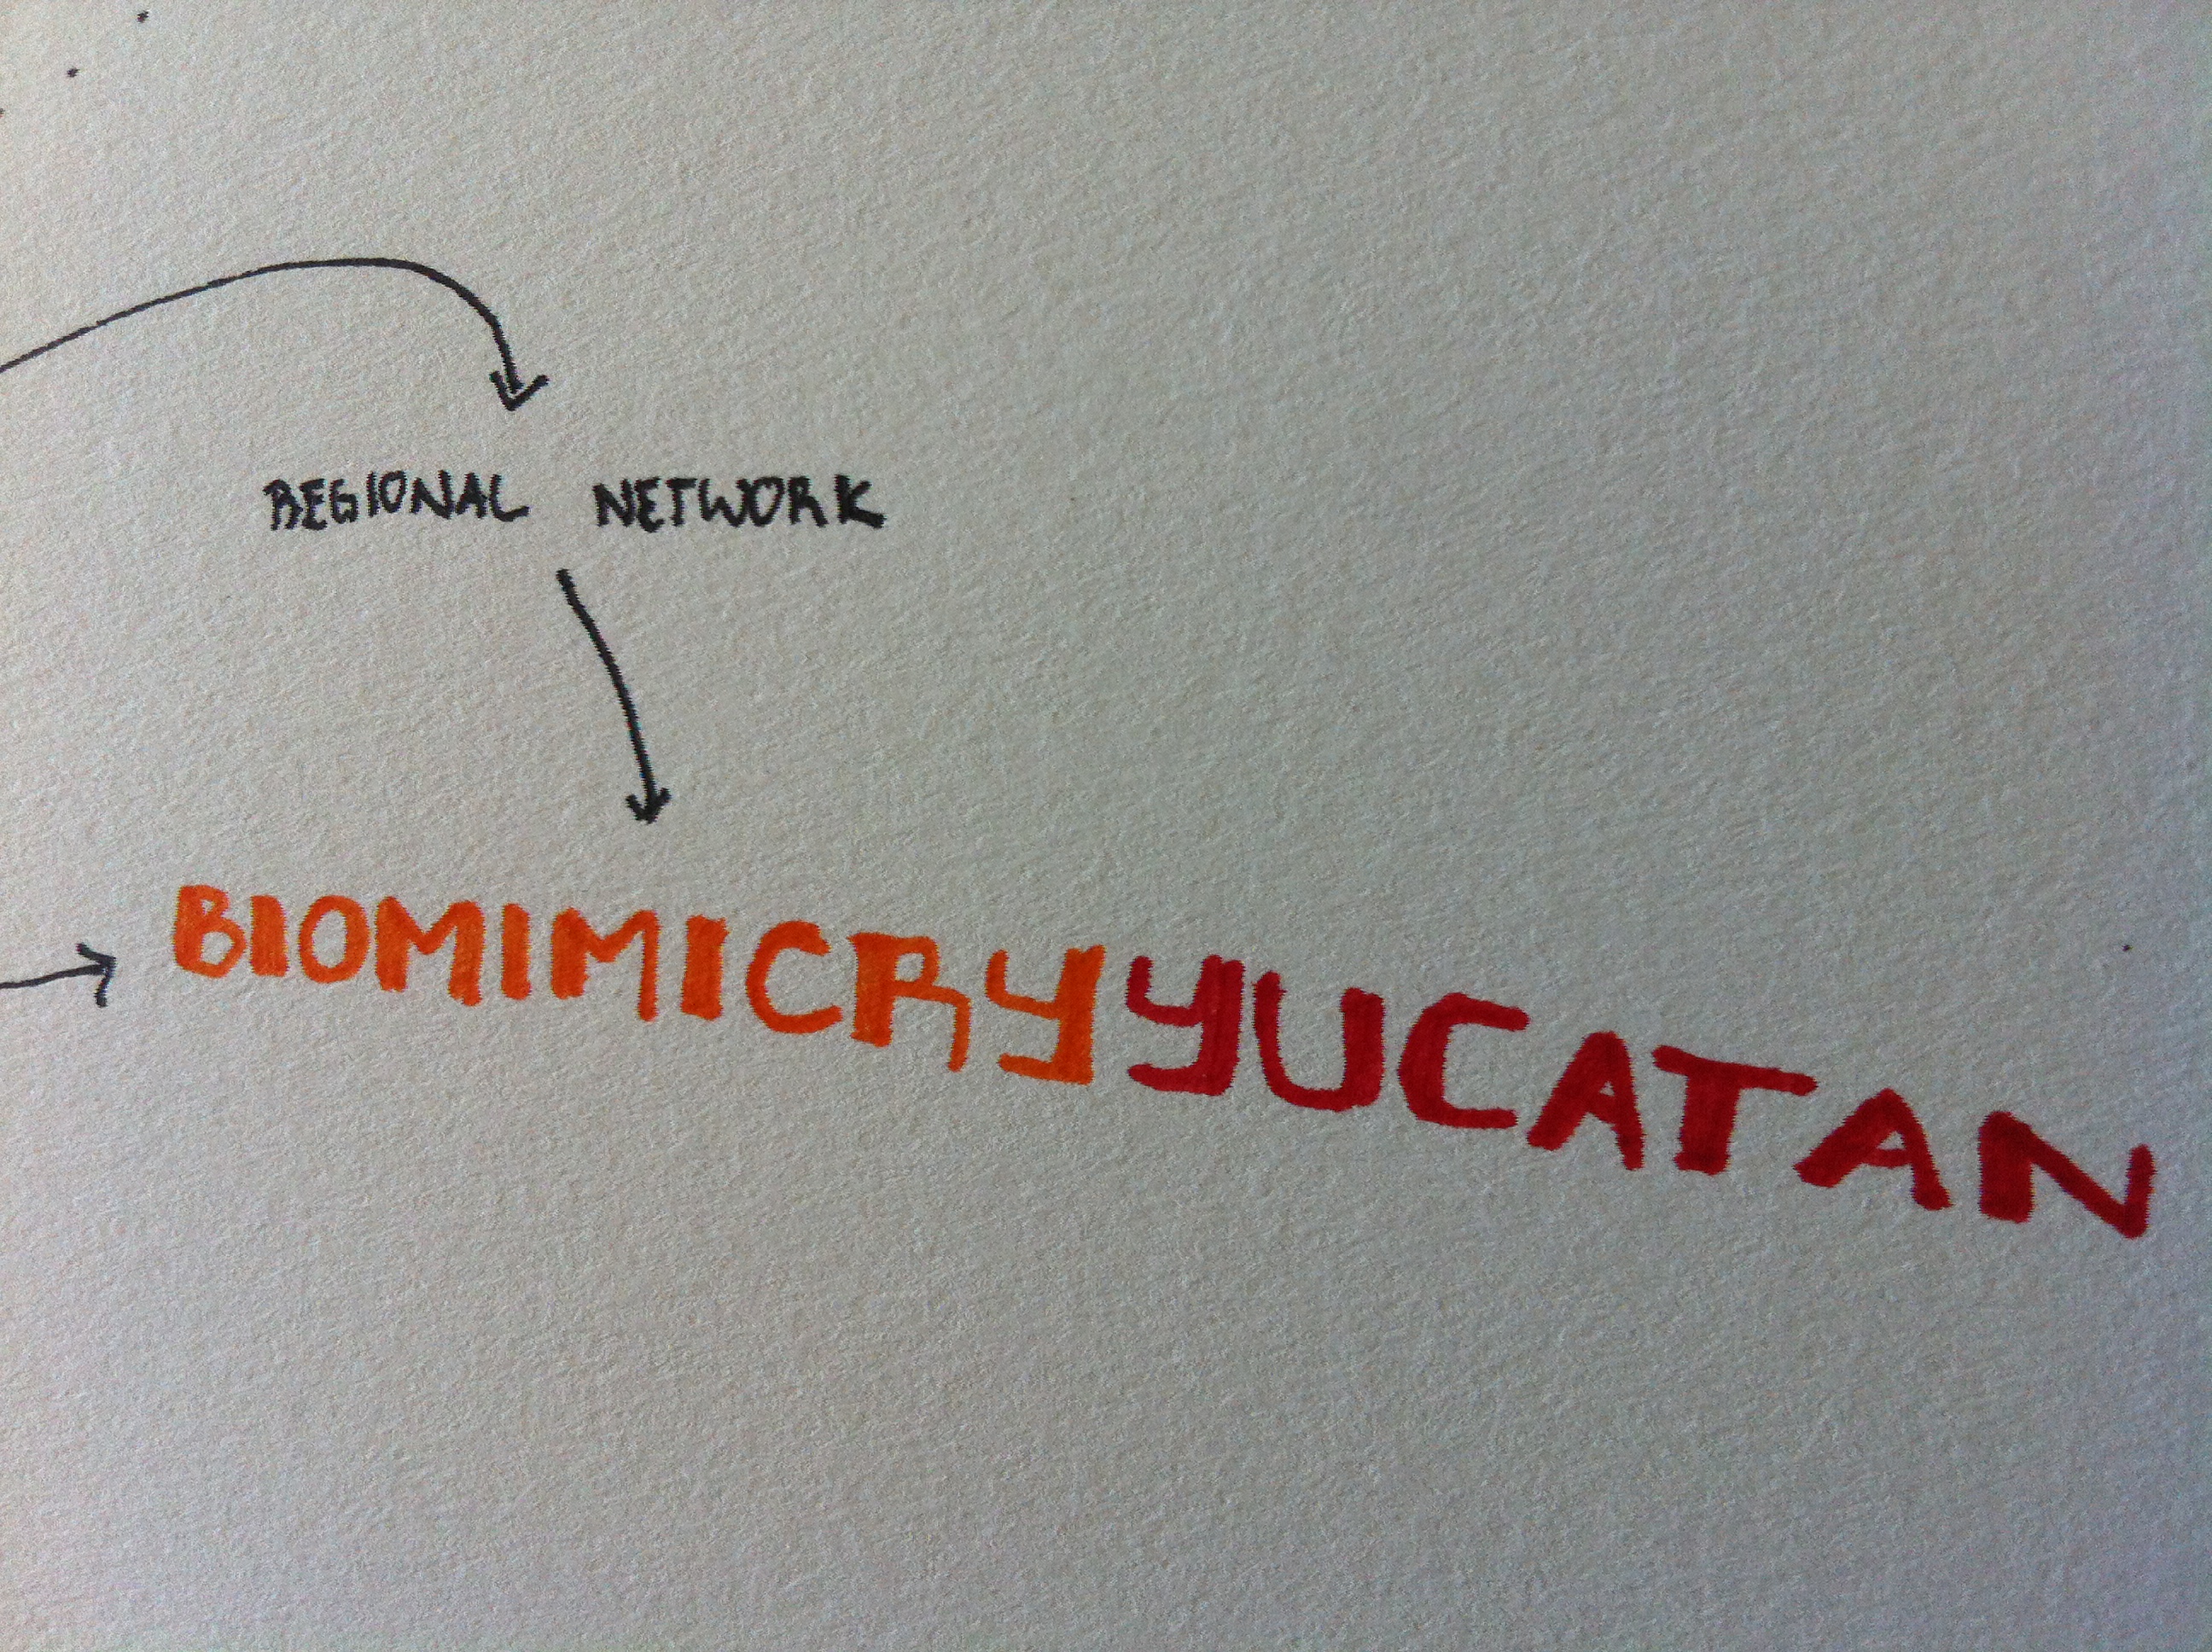 REGIONAL NETWORK
BIOMIMICRYYUCATAN